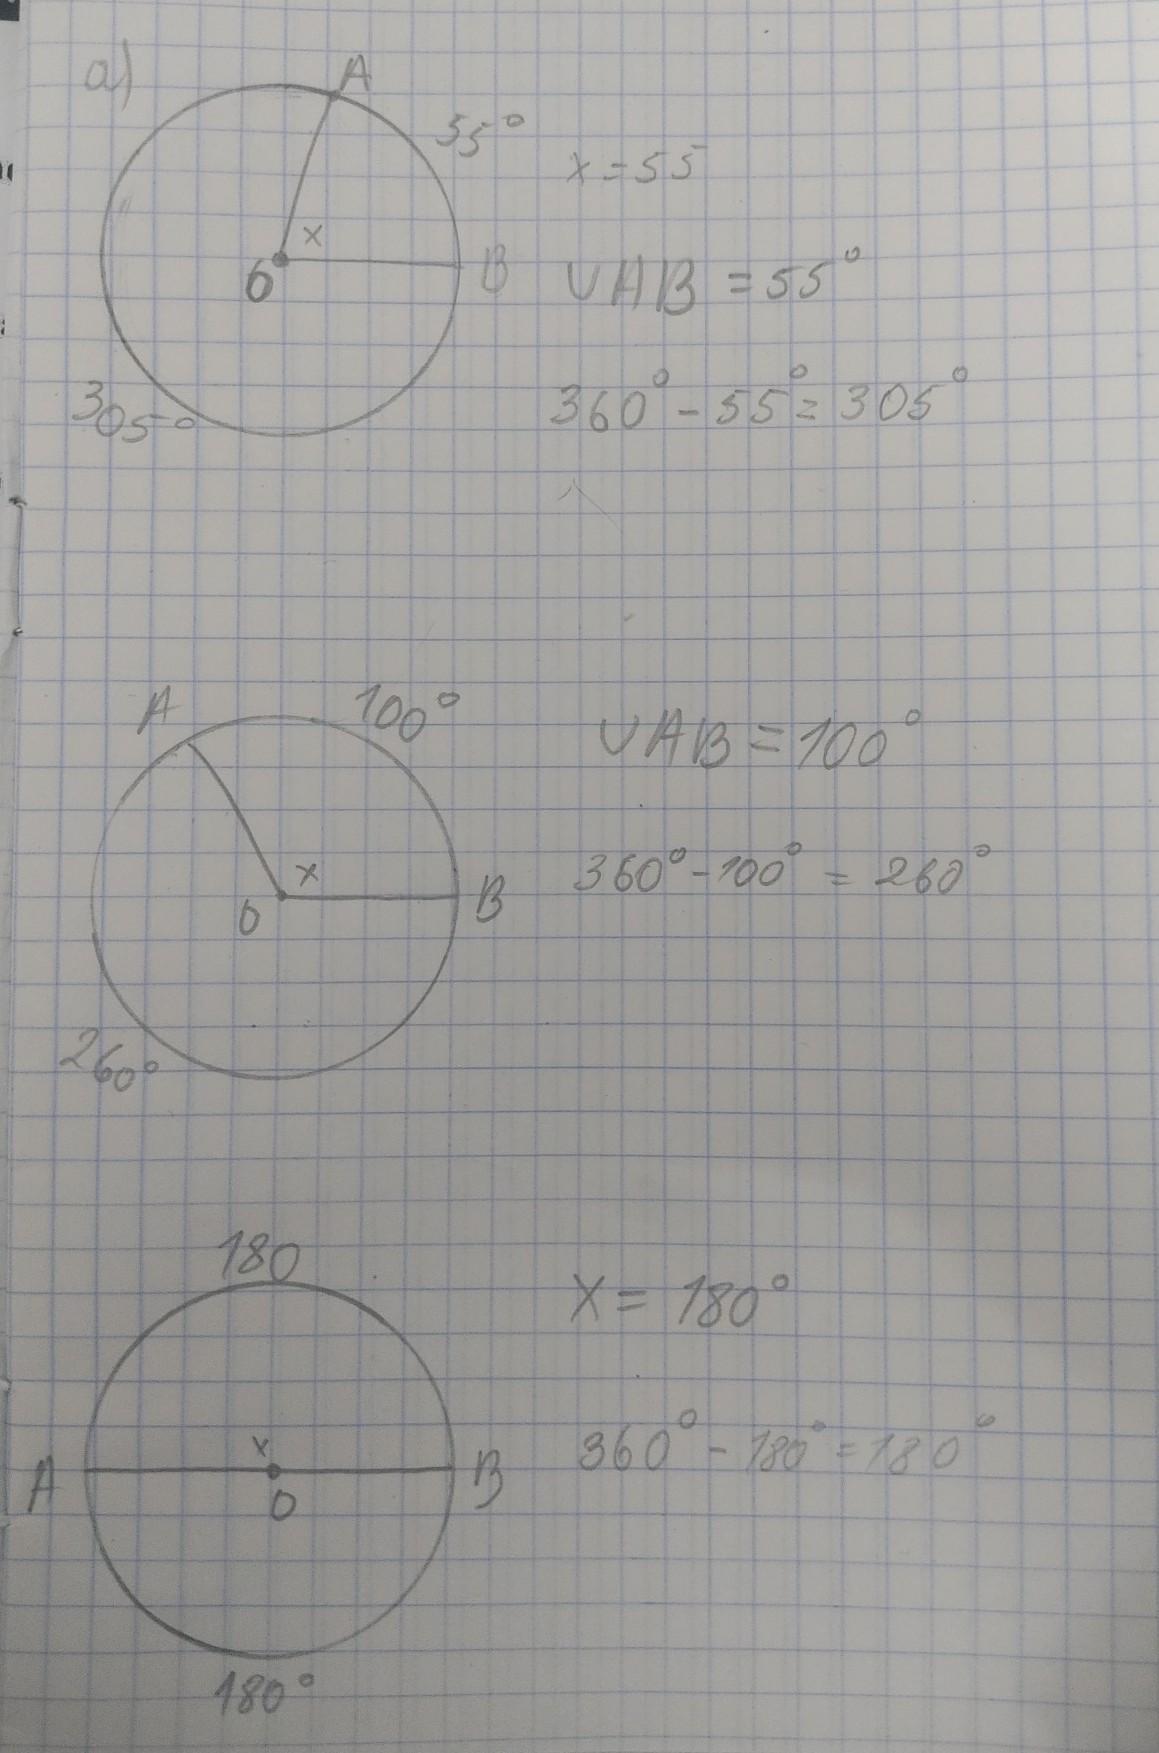 a)
A
55°
x = 55
x
O
B
∪AB = 55°
305°
360° - 55° = 305°
A
100°
∪AB = 100°
x
360° - 100° = 260°
O
B
260°
180
x = 180°
x
360° - 180° = 180°
A
B
O
180°